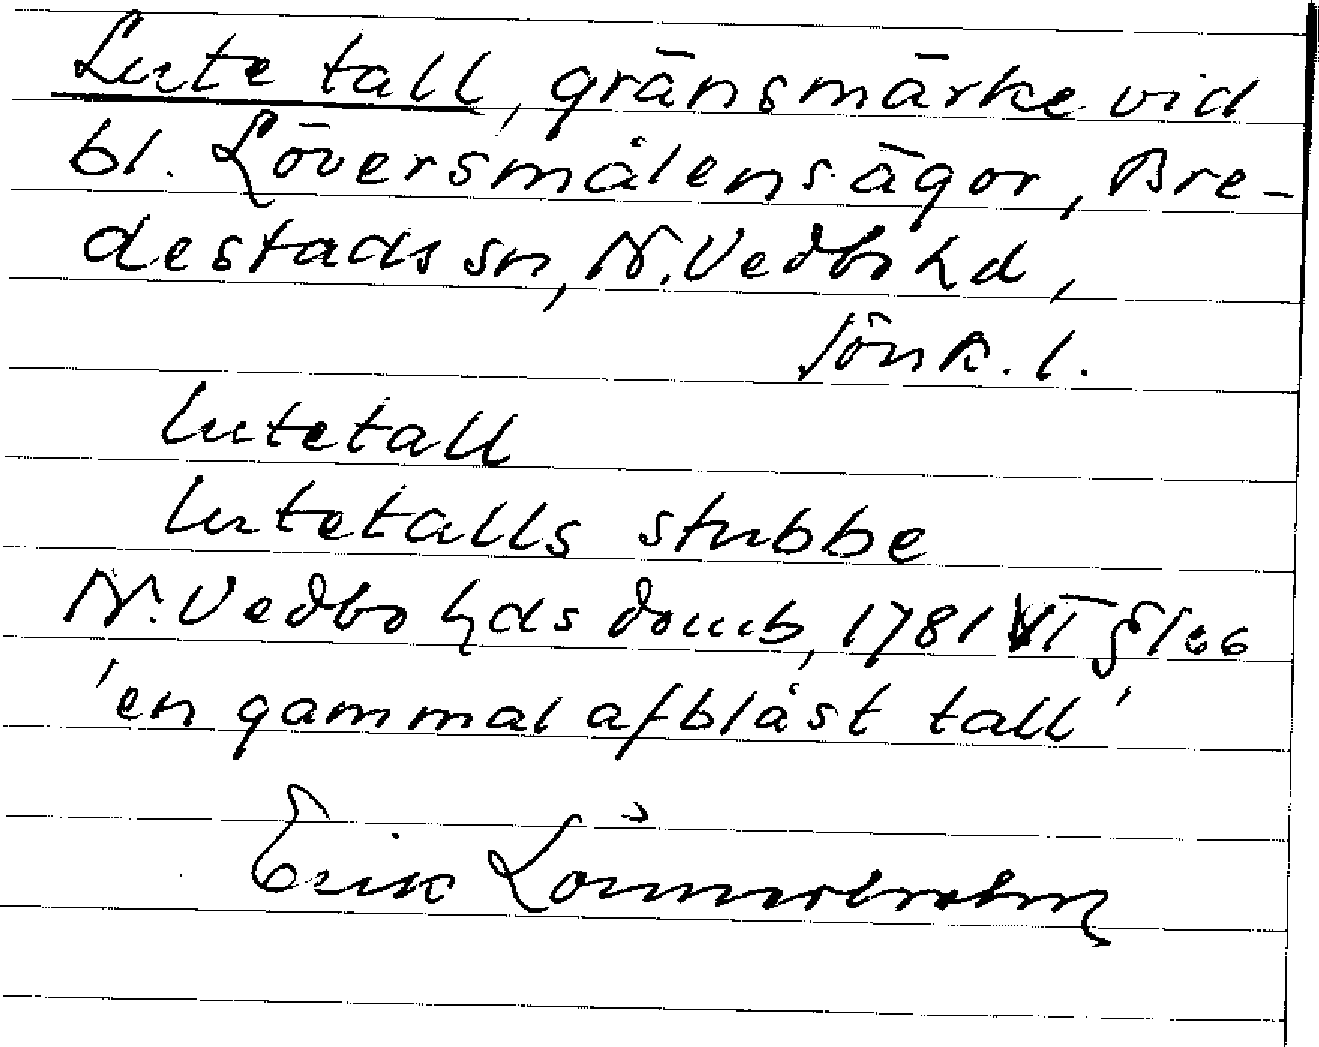 Lutetall, gränsmärke vid
bl. Löversmålens ägor, Bre-
destads sn, N. Vedbo hd,
Jönk. l.
lutetall
lutetalls stubbe
N. Vedbo hds domb, 1781 VT § 166
'en gammal afblåst tall'
Erik